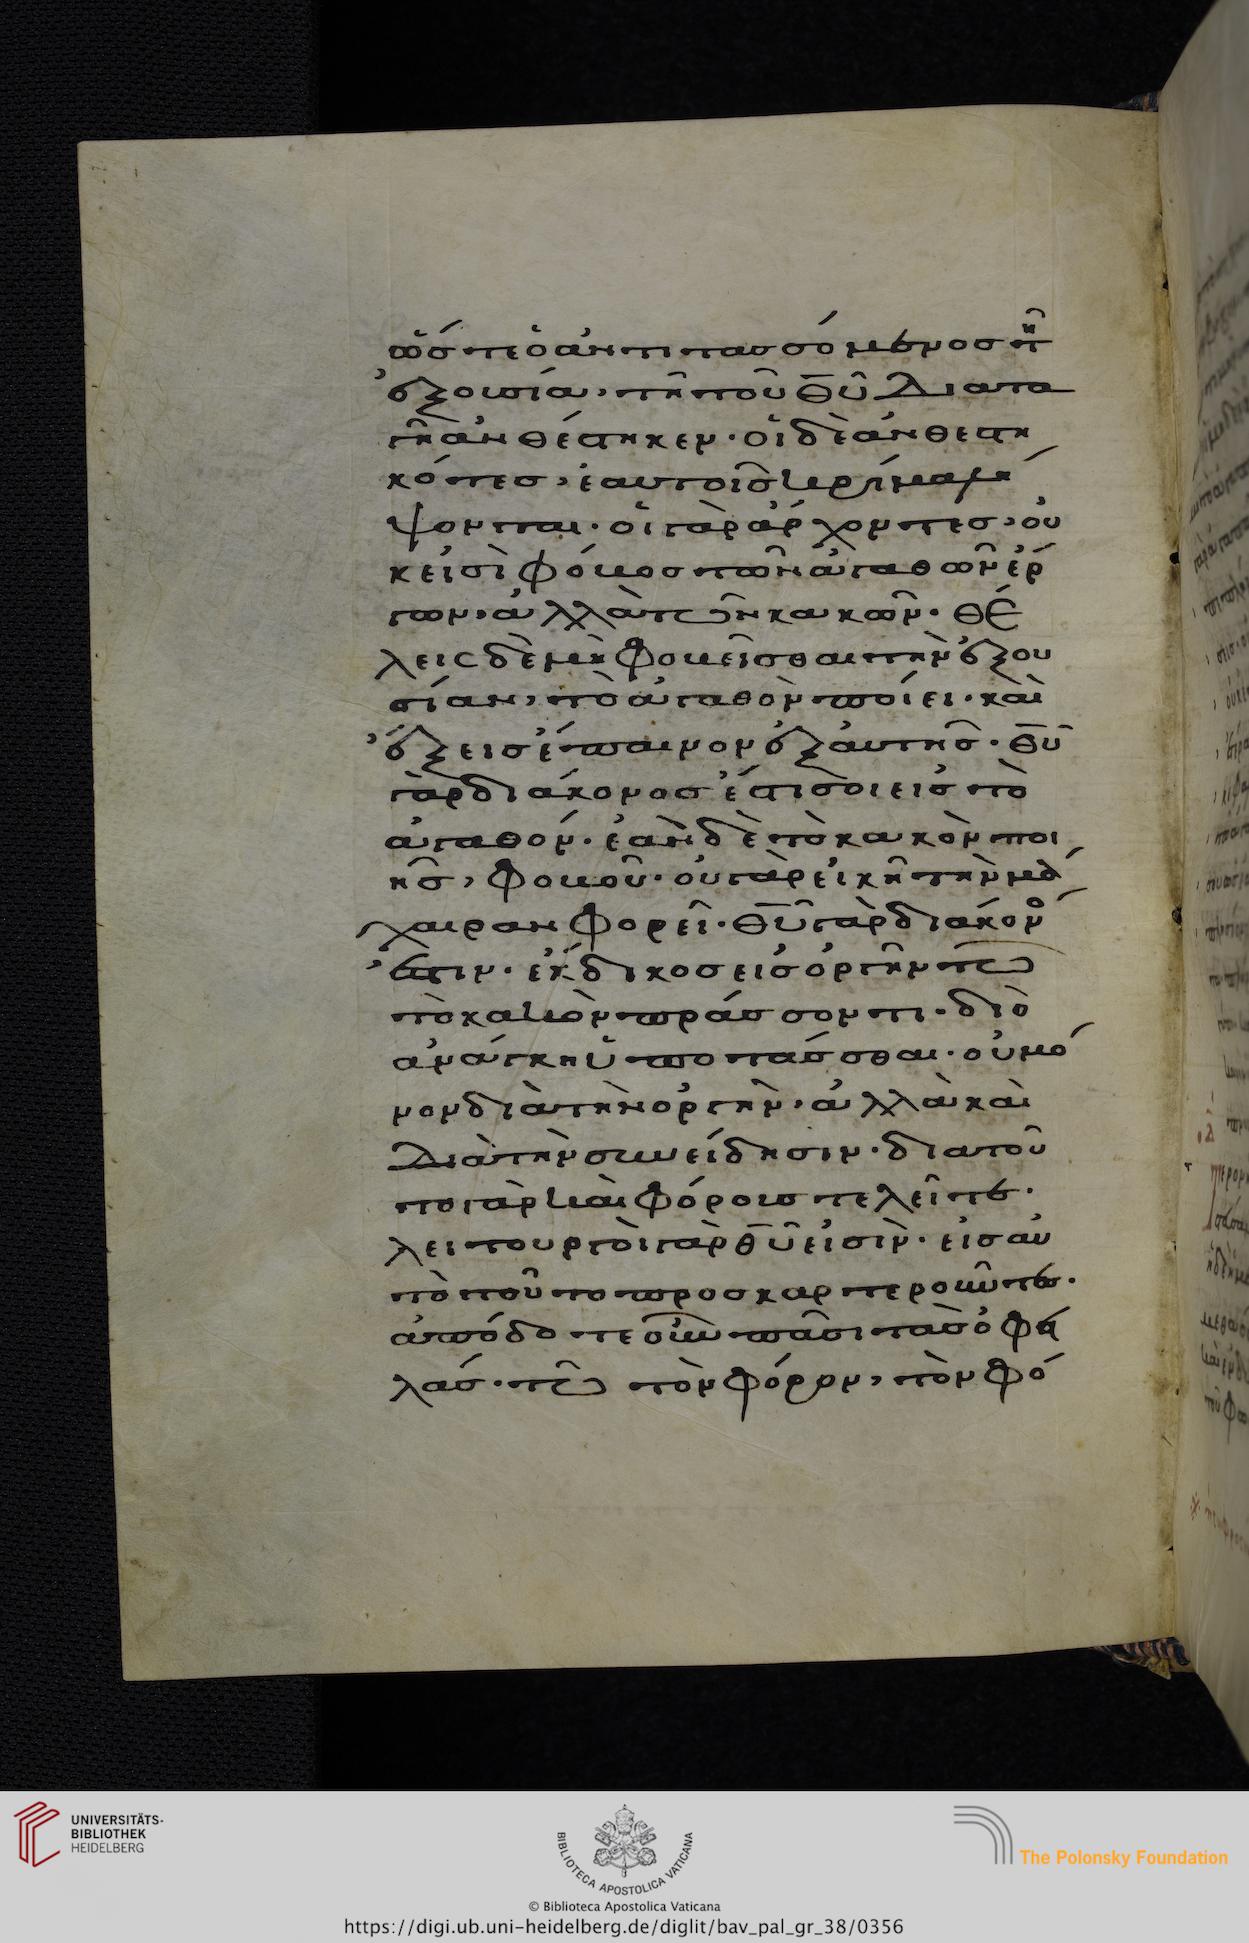 ὥστε ὁ ἀντιτασσόμενος τῆ
ἐξουσία, τῆ τοῦ θῦ διατα
γῆ ἀνθέστηκεν· οἱ δὲ ἀνθεστη
κότες, ἑαυτοῖς κρίμα λή
ψονται· οἱ γὰρ ἄρχοντες, οὐ
κ εἰσὶ φόβος τῶν ἀγαθῶν ἔρ
γων, ἀλλὰ τῶν κακῶν· θέ
λεις δὲ μὴ φοβεῖσθαι τὴν ἐξου
σίαν, τὸ ἀγαθὸν ποίει· καὶ
ἕξεις ἔπαινον ἐξ αὐτῆς· θῦ
γὰρ διάκονος ἐστί σοι εἰς τὸ
ἀγαθόν· ἐὰν δὲ τὸ κακὸν ποι
ῆς, φοβοῦ· οὐ γὰρ εἰκῆ τὴν μά
χαιραν φορεῖ· θῦ γὰρ διάκονο
ἐστιν· ἔκδικος εἰς ὀργὴν τῶ
τὸ κακὸν πράσσοντι· διὸ
ἀνάγκη ὑποτάσσθαι· οὐ μό
νον διὰ τὴν ὀργὴν, ἀλλὰ καὶ
διὰ τὴν συνείδησιν· διὰ τοῦ
το γὰρ καὶ φόρους τελεῖτε·
λειτουργοὶ γὰρ θῦ εἰσὶν· εἰς αὐ
τὸ τοῦτο προσκαρτεροῦντες·
ἀπόδοτε οὖν πᾶσι τὰς ὀφει
λάς· τῶ τὸν φόρον, τὸν φό
UNIVERSITÄTS-
BIBLIOTHEK
HEIDELBERG
BIBLIOTECA APOSTOLICA VATICANA
The Polonsky Foundation
© Biblioteca Apostolica Vaticana
https://digi.ub.uni-heidelberg.de/diglit/bav_pal_gr_38/0356